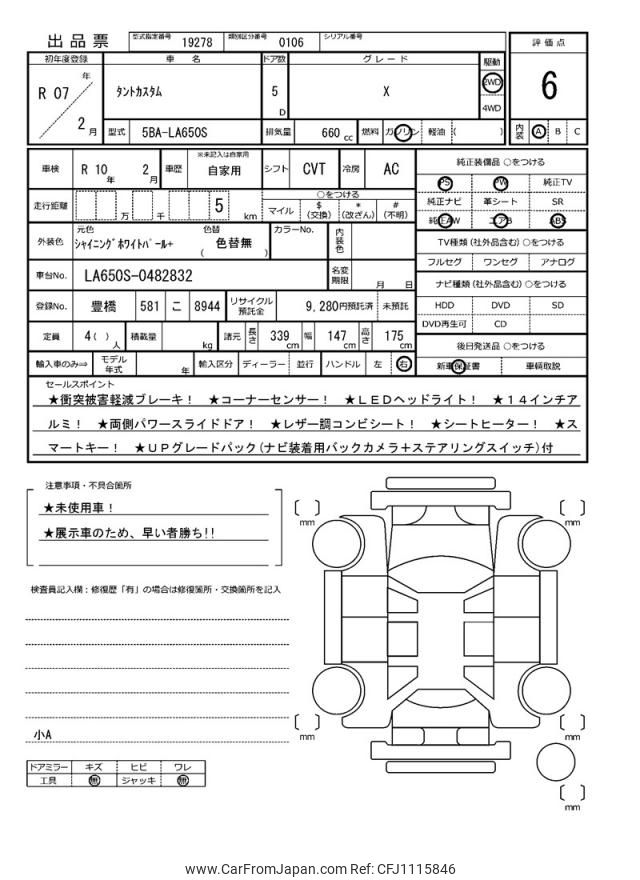 出品票 型式指定番号 19278 類別区分番号 0106 シリアル番号
評価点
6
内装 A B C
初年度登録 車名 ドア数 グレード 駆動
R 07 年 2 月 タントカスタム 5 D X 2WD 4WD
型式 5BA-LA650S 排気量 660 cc 燃料 ガソリン 軽油 ( )
車検 R 10 年 2 月 車歴 ※未記入は自家用 自家用 シフト CVT 冷房 AC
走行距離 万 千 5 km ○をつける
マイル $(交換) *(改ざん) #(不明)
外装色 元色 シャイニングホワイトパール+ 色替 ( 色替無 ) カラーNo. 内装色
車台No. LA650S-0482832 名変期限 月 日
登録No. 豊橋 581 こ 8944 リサイクル預託金 9,280円預託済 未預託
定員 4( )人 積載量 kg 諸元 長さ 339 cm 幅 147 cm 高さ 175 cm
輸入車のみ⇒ モデル年式 年 輸入区分 ディーラー 並行 ハンドル 左 右
純正装備品 ○をつける
PS PW 純正TV
純正ナビ 革シート SR
純正AW エアB ABS
TV種類(社外品含む)○をつける
フルセグ ワンセグ アナログ
ナビ種類(社外品含む)○をつける
HDD DVD SD
DVD再生可 CD
後日発送品 ○をつける
新車保証書 車輌取説
セールスポイント
★衝突被害軽減ブレーキ! ★コーナーセンサー! ★LEDヘッドライト! ★14インチア
ルミ! ★両側パワースライドドア! ★レザー調コンビシート! ★シートヒーター! ★ス
マートキー! ★UPグレードパック(ナビ装着用バックカメラ+ステアリングスイッチ)付
注意事項・不具合箇所
★未使用車!
★展示車のため、早い者勝ち!!
検査員記入欄:修復歴「有」の場合は修復箇所・交換箇所を記入
小A
ドアミラー キズ ヒビ ワレ
工具 無 ジャッキ 無
[ ] mm
[ ] mm
[ ] mm
[ ] mm
[ ] mm
www.CarFromJapan.com Ref: CFJ1115846